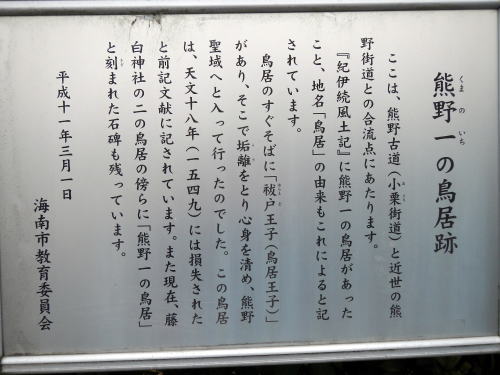 熊野一の鳥居跡
ここは、熊野古道（小栗街道）と近世の熊
野街道との合流点にあたります。
『紀伊続風土記』に熊野一の鳥居があった
こと、地名「鳥居」の由来もこれによると記
されています。
鳥居のすぐそばに「祓戸王子（鳥居王子）」
があり、そこで垢離をとり心身を清め、熊野
聖域へと入って行ったのでした。この鳥居
は、天文十八年（一五四九）には損失された
と前記文献に記されています。また現在、藤
白神社の二の鳥居の傍らに「熊野一の鳥居」
と刻まれた石碑も残っています。
平成十一年三月一日
海南市教育委員会